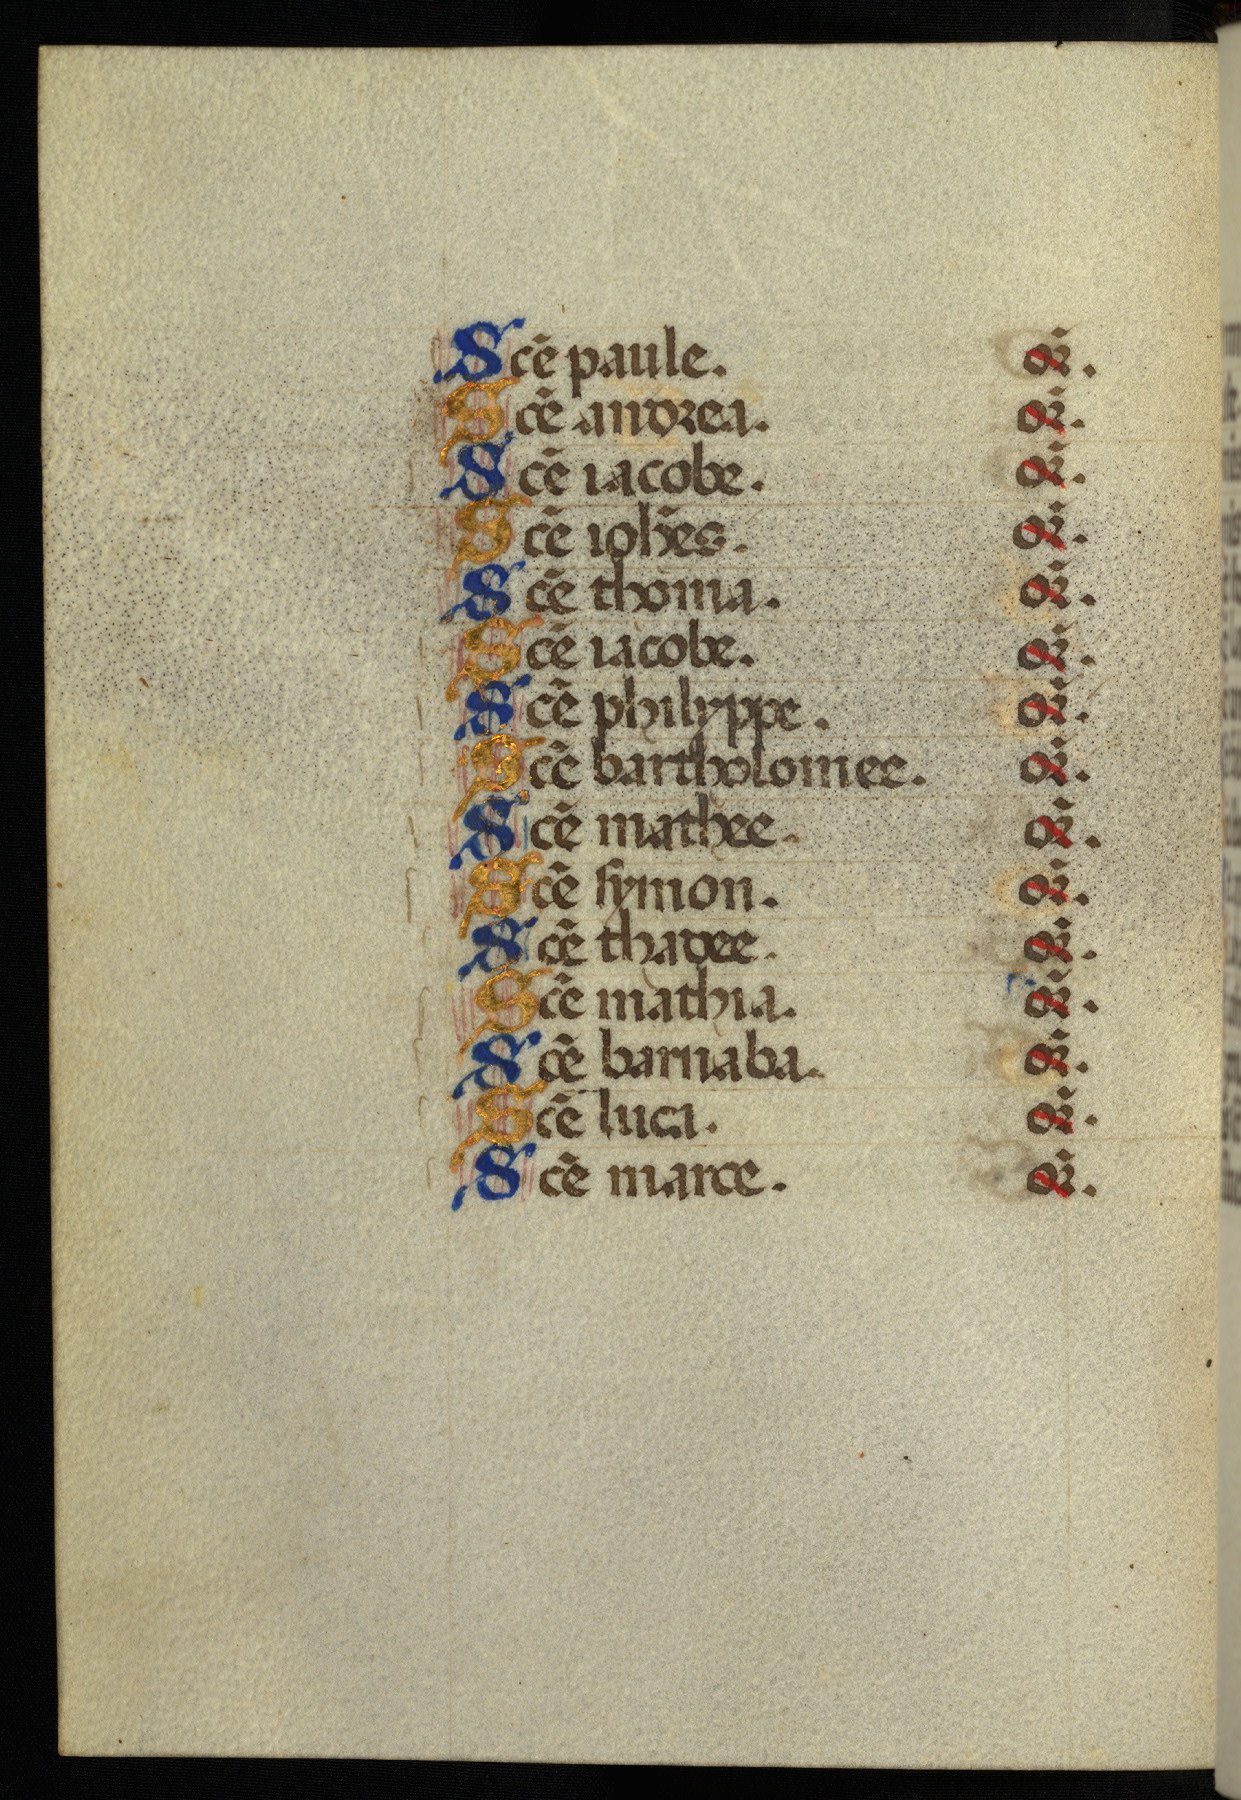 Scē paule. or̄.
Scē andrea. or̄.
Scē iacobe. or̄.
Scē ioh̄es. or̄.
Scē thoma. or̄.
Scē iacobe. or̄.
Scē philyppe. or̄.
Scē bartholomee. or̄.
Scē mathee. or̄.
Scē symon. or̄.
Scē thadee. or̄.
Scē mathia. or̄.
Scē barnaba. or̄.
Scē luca. or̄.
Scē marce. or̄.